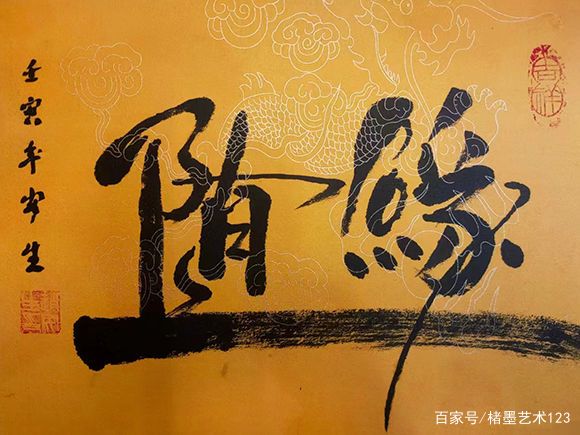 随緣
壬寅年
吉祥
百家号/楮墨艺术123